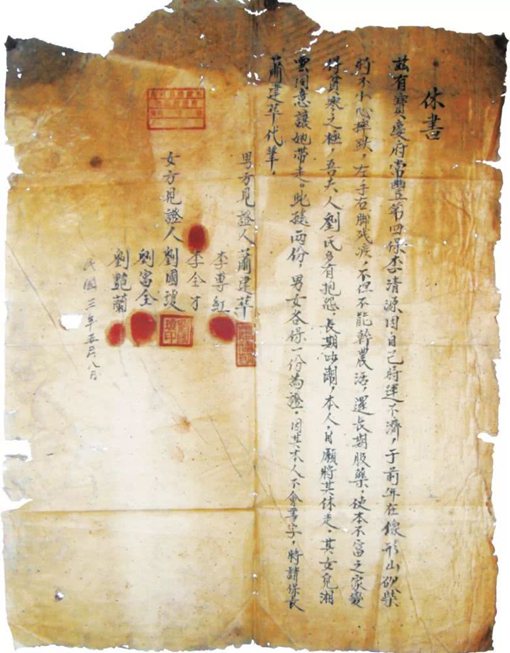 休書
茲有寶慶府常豐第四保李清源因自己時運下濟，于前年在像形山砍柴
時不小心摔跌，左手右脚残疾，不但不能幹農活，還長期服藥，使本不富之家變
得貧寒之極，吾夫人劉氏多有抱怨，長期吵鬧，本人自願將其休走，其女兒湘
雲同意讓她帶走。此據兩份，男女各保一份為證，因其本人不會寫字，特請保長
蕭建華代筆，
男方見證人蕭建華
李專紅
李全才
女方見證人劉國瓊
劉富全
劉艷蘭
民國三年五月八日